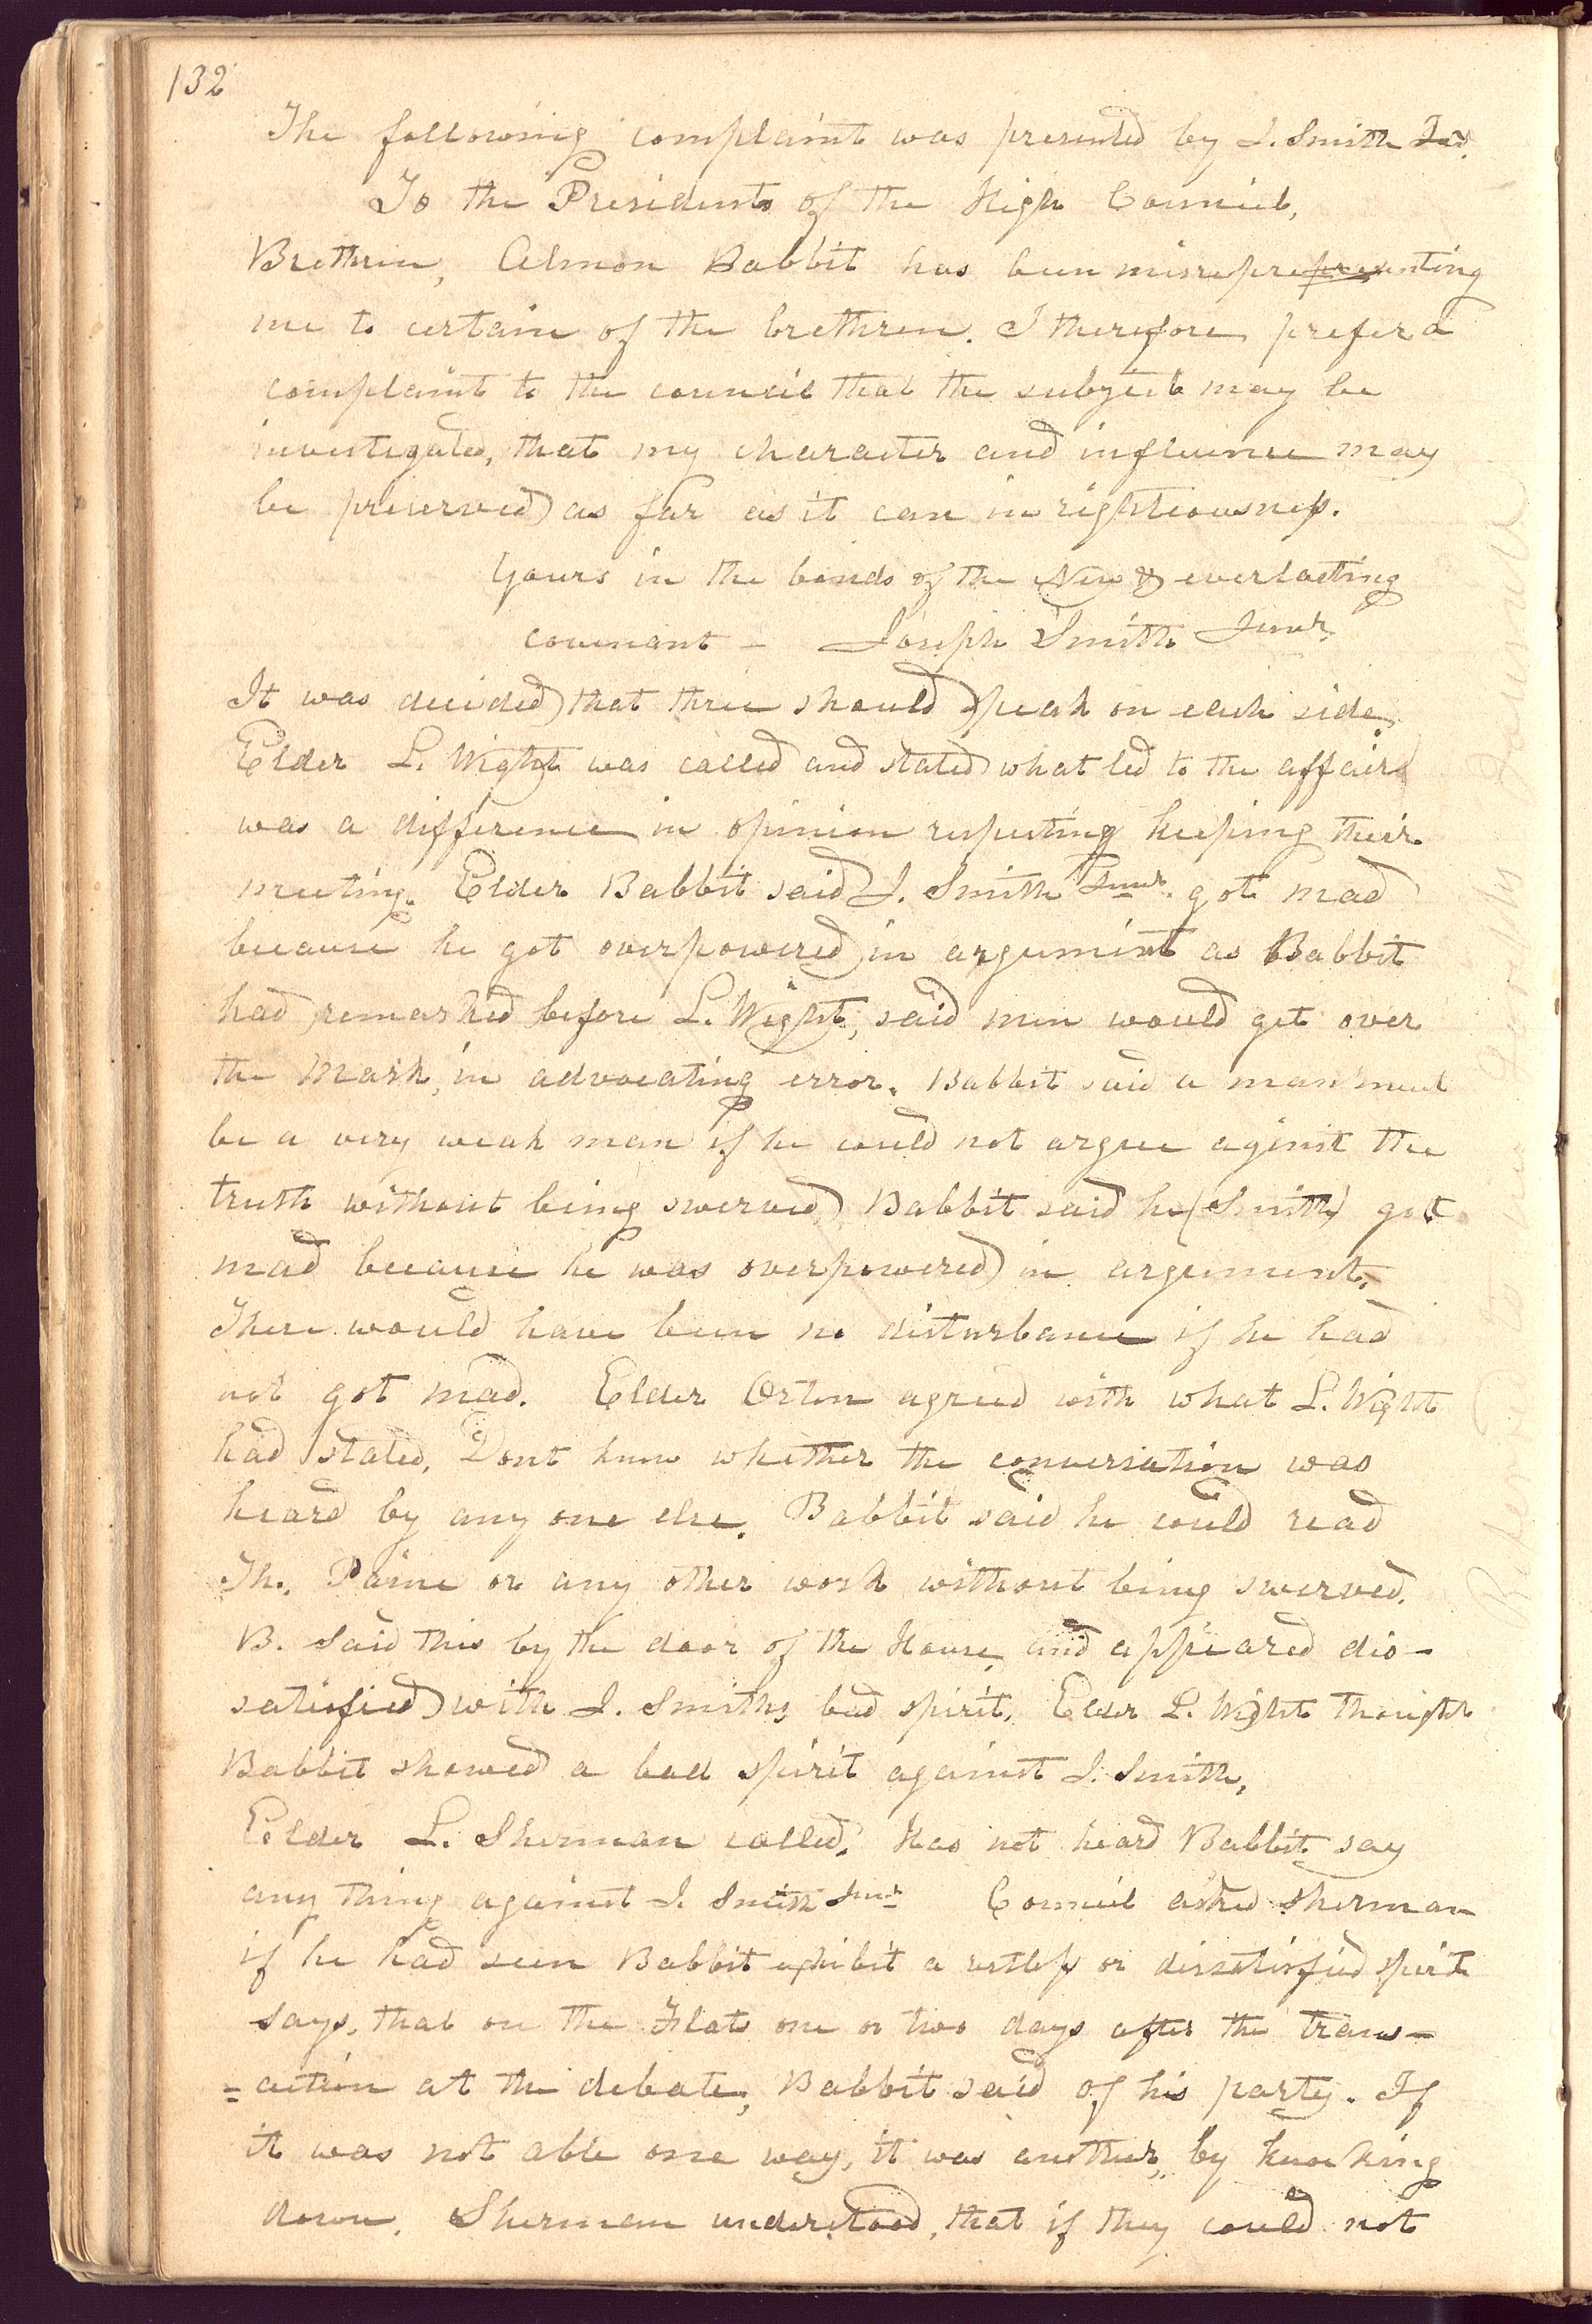 132
The following complaint was presented by J. Smith Jur.
To the Presidents of the High Council,
Brethren, Almon Babbit has been misreprepresenting
me to certain of the brethren. I therefore prefer a
complaint to the council that the subject may be
investigated, that my character and influence may
be preserved as far as it can in righteousness.
Yours in the bonds of the New & everlasting
covenant - Joseph Smith Junr.
It was decided that three should speak on each side.
Elder L. Wight was called and stated what led to the affair
was a difference in opinion respecting keeping their
meeting. Elder Babbit said J. Smith Junr. got mad
because he got overpowered in argument as Babbit
had remarked before L. Wight, said men would get over
the mark, in advocating error. Babbit said a man must
be a very weak man if he could not argue aginst the
truth without being swerved Babbit said he (Smith) got
mad because he was overpowered in argument.
There would have been no disturbance if he had
not got mad. Elder Orton agreed with what L. Wight
had stated. Dont know whether the conversation was
heard by any one else. Babbit said he could read
Th. Paine or any other work without being swerved.
B. said this by the door of the House, and appeared dis-
satisfied with J. Smiths bad spirit. Elder L. Wight thought
Babbit showed a bad spirit against J. Smith,
Elder L. Sherman called. Has not heard Babbit say
any thing against J. Smith Junr Council asked Sherman
if he had seen Babbit exhibit a restless or dissatisfied spirit
says, that on the Flats one or two days after the trans-
=action at the debate, Babbit said of his party. If
it was not able one way, it was another, by knocking
down. Sherman understood, that if they could not